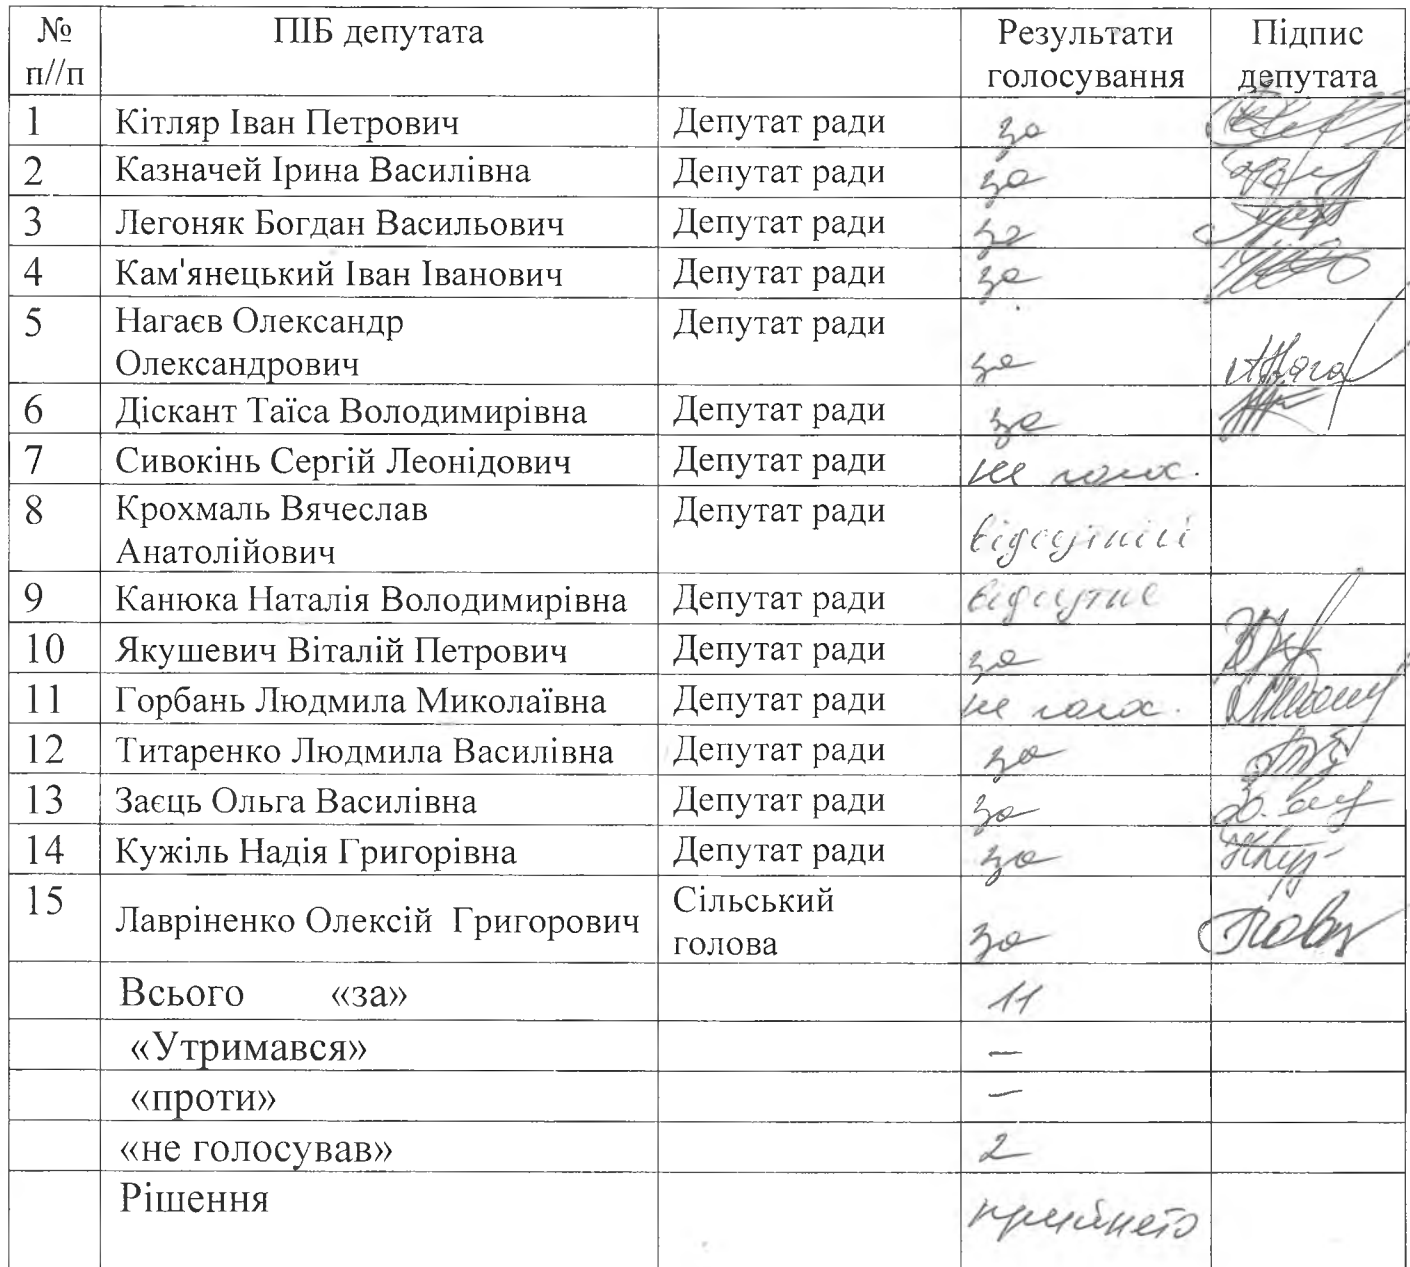 № ПІБ депутата Результати Підпис
п//п голосування депутата
1 Кітляр Іван Петрович Депутат ради за
2 Казначей Ірина Василівна Депутат ради за
3 Легоняк Богдан Васильович Депутат ради за
4 Кам'янецький Іван Іванович Депутат ради за
5 Нагаєв Олександр Депутат ради
Олександрович за
6 Діскант Таїса Володимирівна Депутат ради за
7 Сивокінь Сергій Леонідович Депутат ради не голос.
8 Крохмаль Вячеслав Депутат ради
Анатолійович відсутній
9 Канюка Наталія Володимирівна Депутат ради відсутнє
10 Якушевич Віталій Петрович Депутат ради за
11 Горбань Людмила Миколаївна Депутат ради не голос.
12 Титаренко Людмила Василівна Депутат ради за
13 Заєць Ольга Василівна Депутат ради за
14 Кужіль Надія Григорівна Депутат ради за
15 Лавріненко Олексій Григорович Сільський
голова за
Всього «за» 11
«Утримався» —
«проти» —
«не голосував» 2
Рішення прийнето